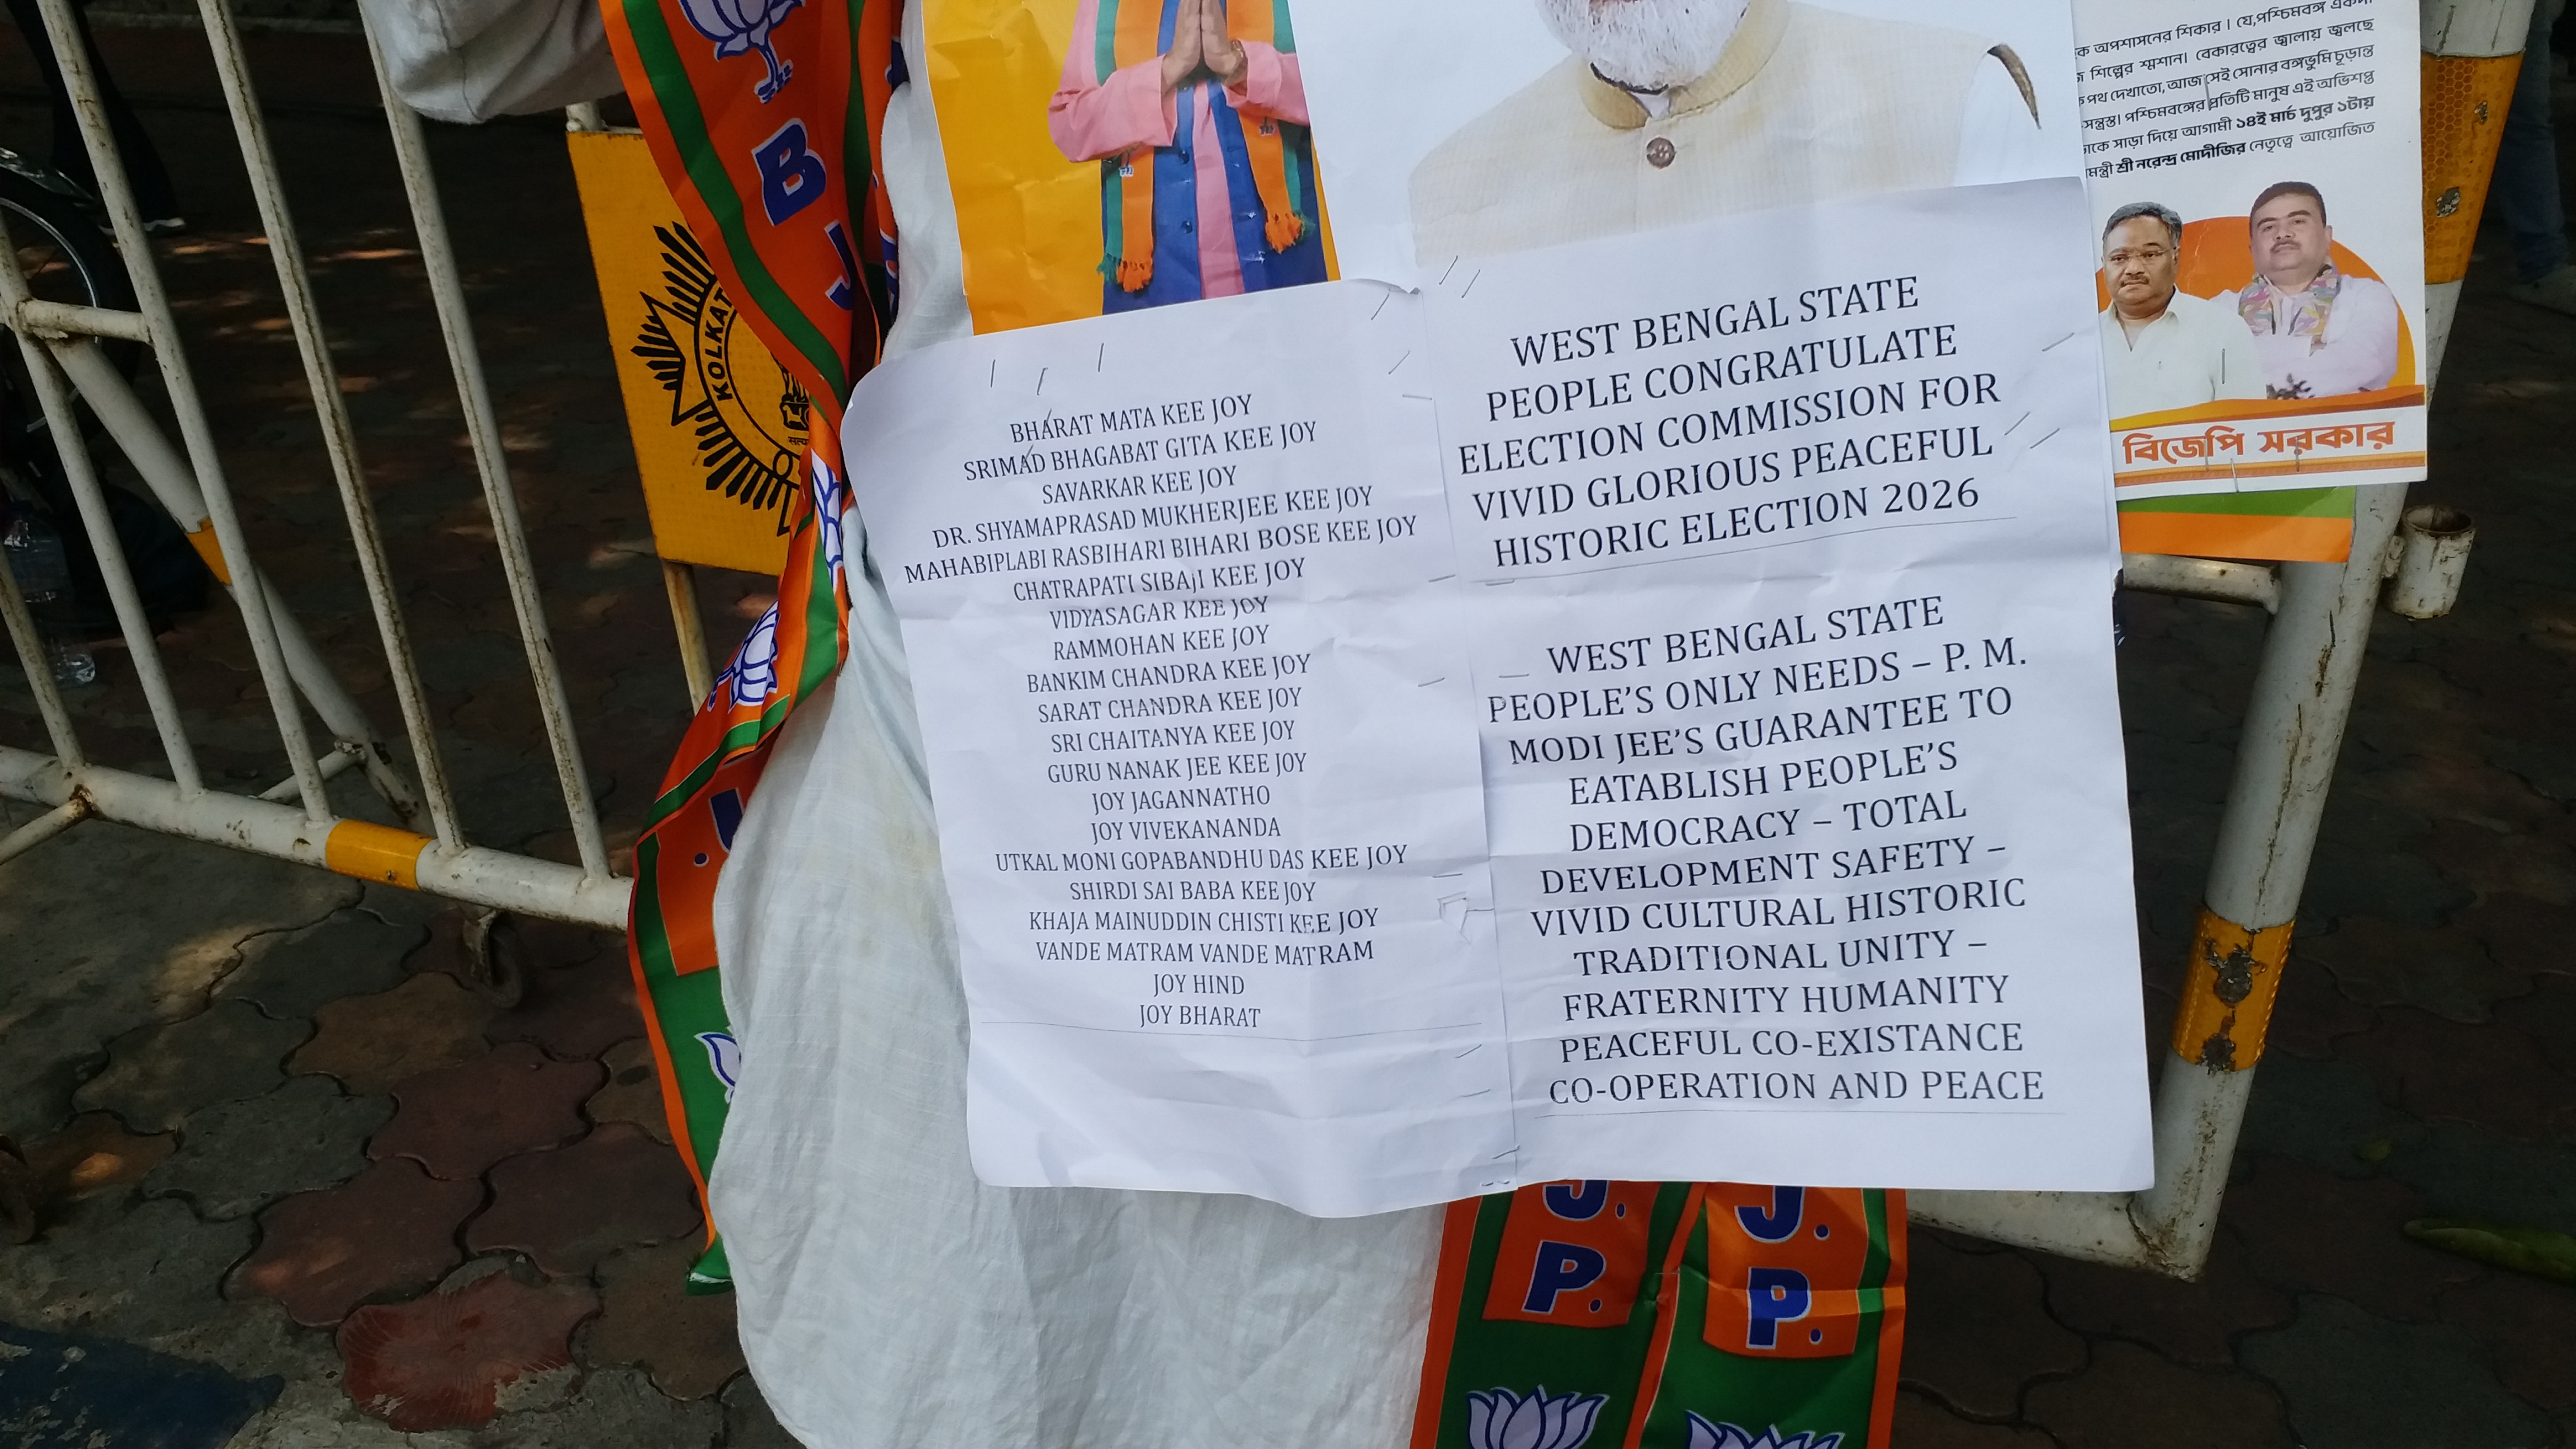 B
J
KOLKAT
BHARAT MATA KEE JOY
SRIMAD BHAGABAT GITA KEE JOY
SAVARKAR KEE JOY
DR. SHYAMAPRASAD MUKHERJEE KEE JOY
MAHABIPLABI RASBIHARI BIHARI BOSE KEE JOY
CHATRAPATI SIBAjI KEE JOY
VIDYASAGAR KEE JOY
RAMMOHAN KEE JOY
BANKIM CHANDRA KEE JOY
SARAT CHANDRA KEE JOY
SRI CHAITANYA KEE JOY
GURU NANAK JEE KEE JOY
JOY JAGANNATHO
JOY VIVEKANANDA
UTKAL MONI GOPABANDHU DAS KEE JOY
SHIRDI SAI BABA KEE JOY
KHAJA MAINUDDIN CHISTI KEE JOY
VANDE MATRAM VANDE MATRAM
JOY HIND
JOY BHARAT
WEST BENGAL STATE
PEOPLE CONGRATULATE
ELECTION COMMISSION FOR
VIVID GLORIOUS PEACEFUL
HISTORIC ELECTION 2026
WEST BENGAL STATE
PEOPLE'S ONLY NEEDS – P. M.
MODI JEE'S GUARANTEE TO
EATABLISH PEOPLE'S
DEMOCRACY – TOTAL
DEVELOPMENT SAFETY –
VIVID CULTURAL HISTORIC
TRADITIONAL UNITY –
FRATERNITY HUMANITY
PEACEFUL CO-EXISTANCE
CO-OPERATION AND PEACE
অপশাসনের শিকার। যে,পশ্চিমবঙ্গ
শিল্পের শ্মশান। বেকারত্বের জ্বালায় জ্বলছে
পথ দেখাতো, আজ সেই সোনার বঙ্গভুমি চূড়ান্ত
পশ্চিমবঙ্গের প্রতিটি মানুষ এই অভিশপ্ত
সাড়া দিয়ে আগামী ১৪ই মার্চ দুপুর ১টায়
শ্রী নরেন্দ্র মোদীজির নেতৃত্বে আয়োজিত
বিজেপি সরকার
J.
P.
J.
P.